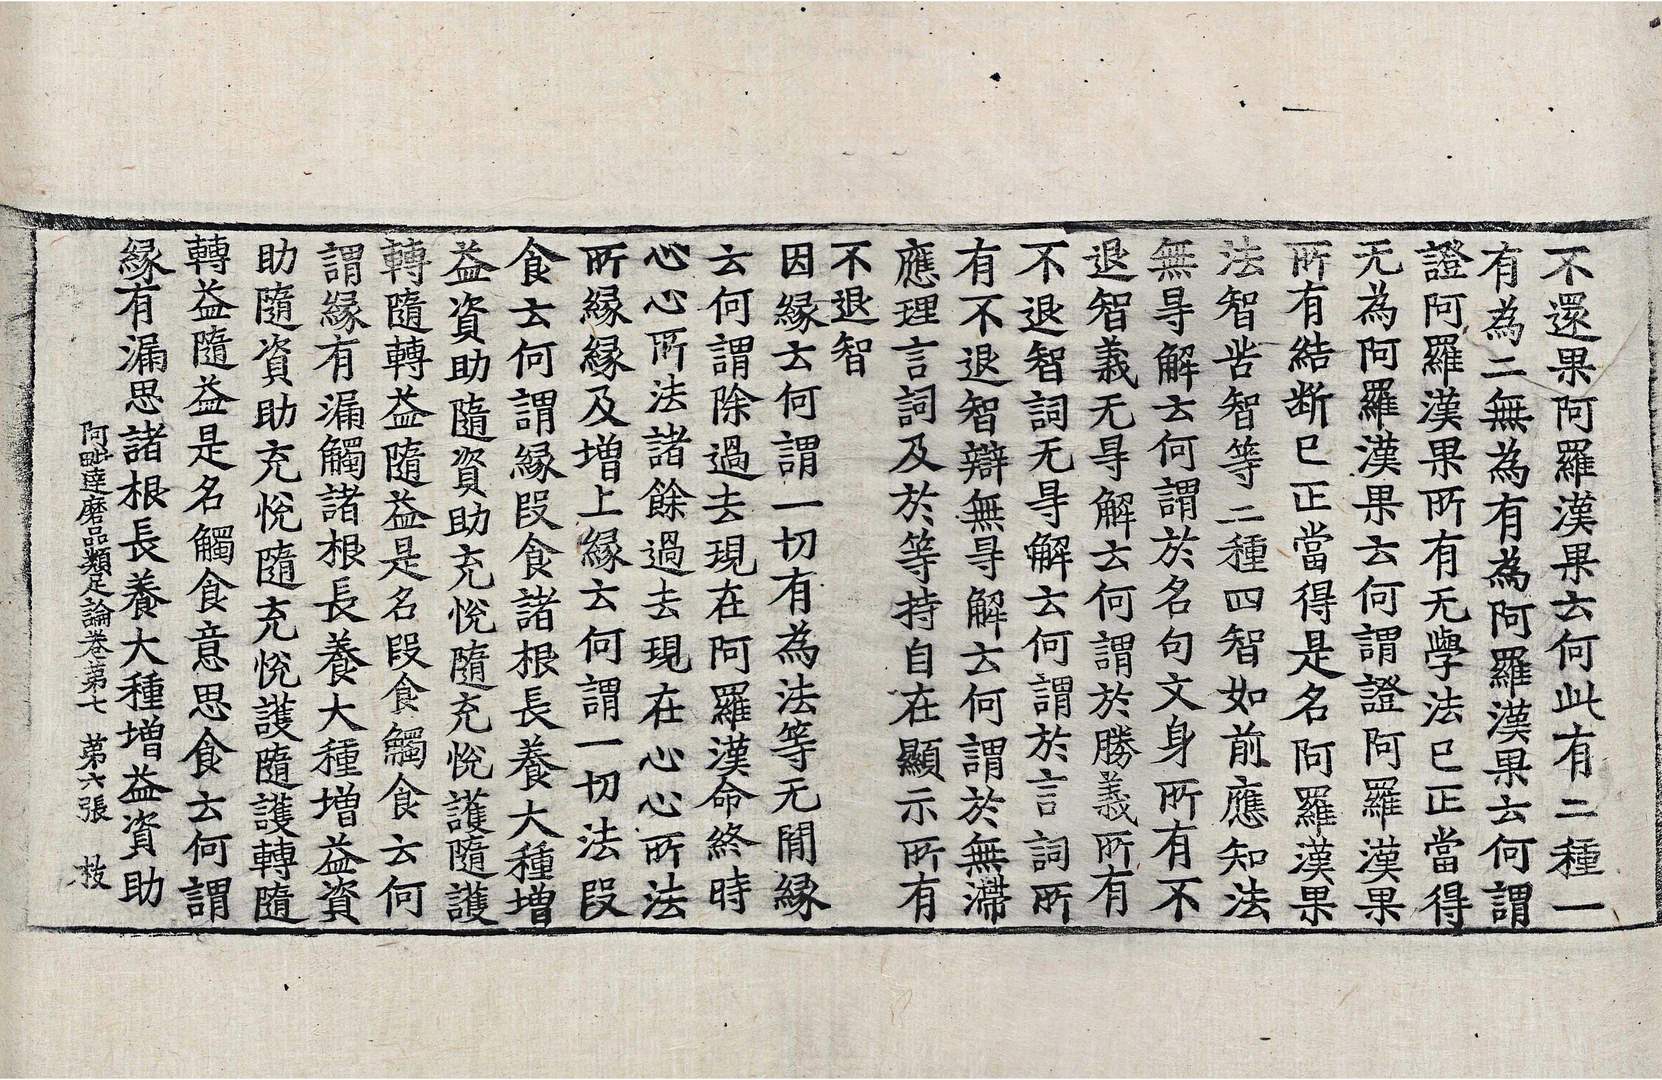 不還果阿羅漢果云何此有二種一
有為二無為有為阿羅漢果云何謂
證阿羅漢果所有无學法已正當得
无為阿羅漢果云何謂證阿羅漢果
所有結断已正當得是名阿羅漢果
法智苦智等二種四智如前應知法
無㝵解云何謂於名句文身所有不
退智義无㝵解云何謂於勝義所有
不退智詞无㝵解云何謂於言詞所
有不退智辯無㝵解云何謂於無滞
應理言詞及於等持自在顯示所有
不退智
因緣云何謂一切有為法等无間緣
云何謂除過去現在阿羅漢命終時
心心所法諸餘過去現在心心所法
所緣緣及增上緣云何謂一切法段
食云何謂緣段食諸根長養大種增
益資助隨資助充悅隨充悅護隨護
轉隨轉益隨益是名段食觸食云何
謂緣有漏觸諸根長養大種增益資
助隨資助充悅隨充悅護隨護轉隨
轉益隨益是名觸食意思食云何謂
緣有漏思諸根長養大種增益資助
阿毗達磨品類足論卷第七 第六張 枝